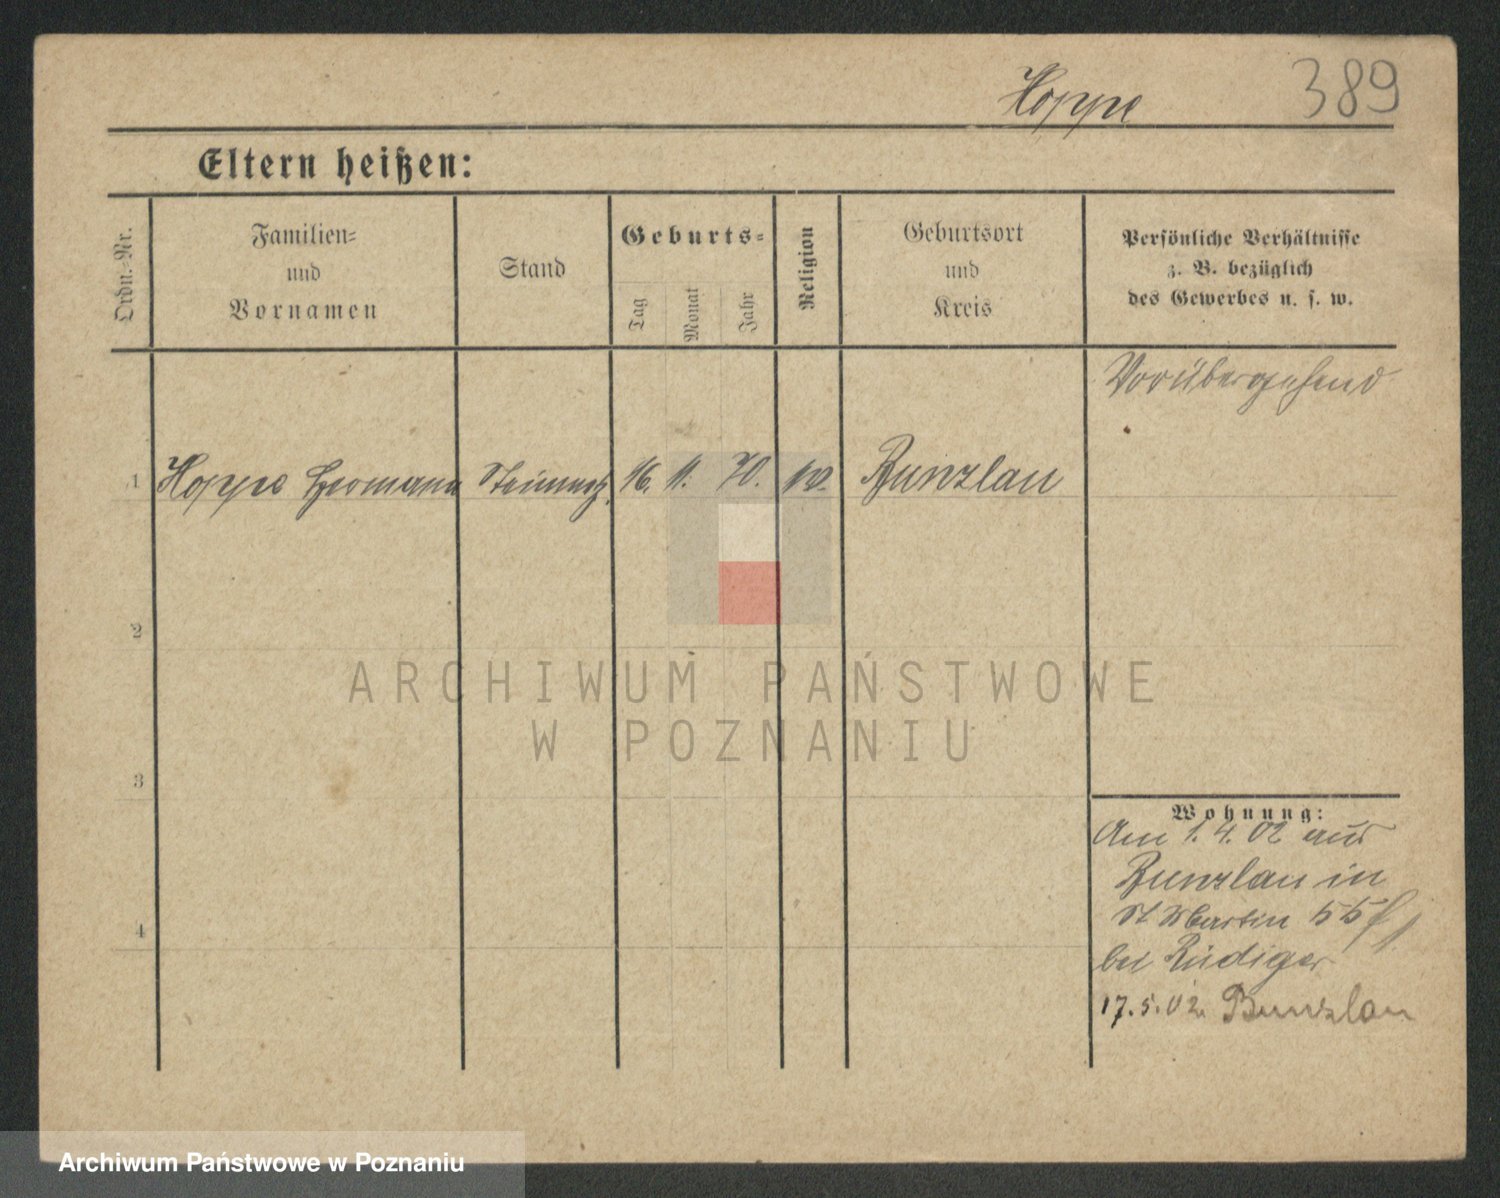 Hoppe 389
Eltern heißen:
Ordn.-Nr.
Familien-
und
Vornamen
Stand
Geburts-
Tag
Monat
Jahr
Religion
Geburtsort
und
Kreis
Persönliche Verhältnisse
z. B. bezüglich
des Gewerbes u. s. w.
Vorübergehend
1 Hoppe Hermann Steinmetz 16. 11. 70. Bunzlau
2
3
4
Wohnung:
Am 1. 4. 02 aus
Bunzlau in
St Martin 55
bei Rüdiger
17. 5. 02. Bunzlau
ARCHIWUM PAŃSTWOWE
W POZNANIU
Archiwum Państwowe w Poznaniu